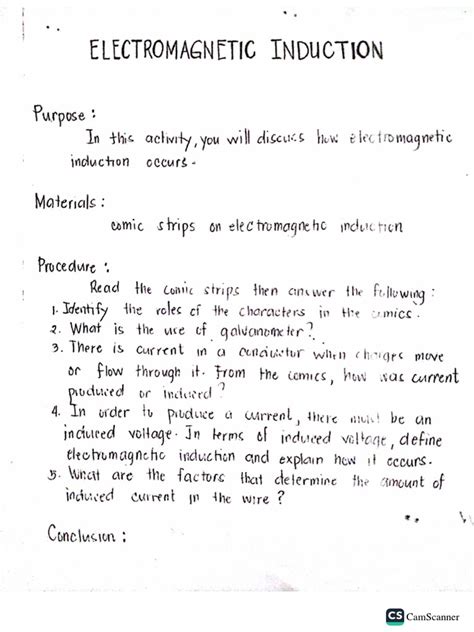 ELECTROMAGNETIC INDUCTION
Purpose :
In this activity, you will discuss how electromagnetic
induction occurs.
Materials :
comic strips on electromagnetic induction
Procedure :
Read the comic strips then answer the following :
1. Identify the roles of the characters in the comics.
2. What is the use of galvanometer?
3. There is current in a conductor when charges move
or flow through it. From the comics, how was current
produced or induced ?
4. In order to produce a current, there must be an
induced voltage. In terms of induced voltage, define
electromagnetic induction and explain how it occurs.
5. What are the factors that determine the amount of
induced current in the wire ?
Conclusion :
CS CamScanner